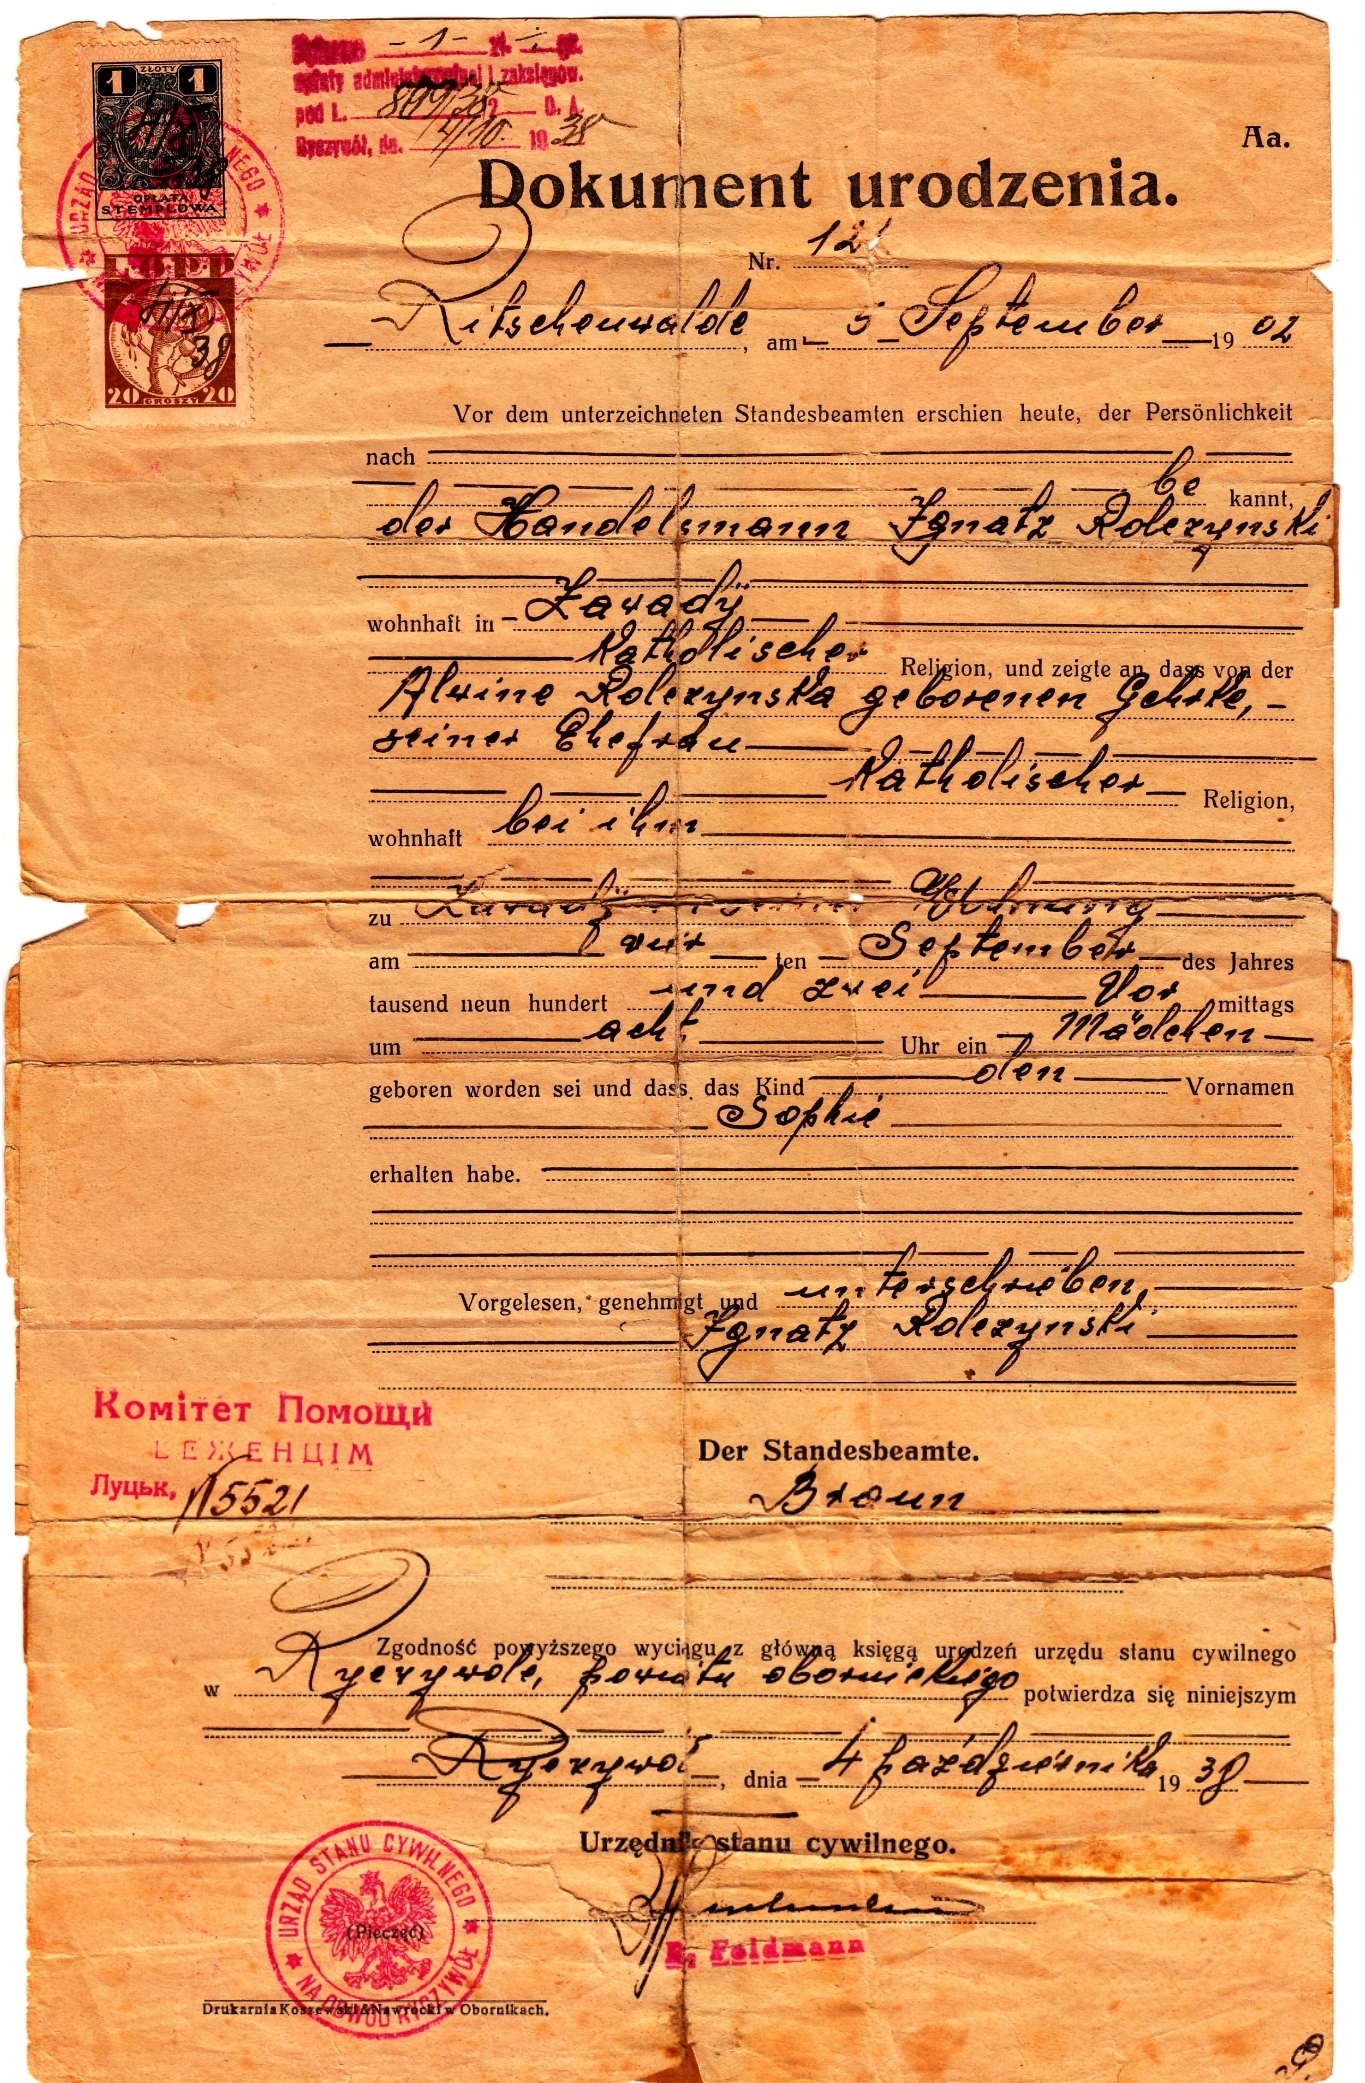 1 ZŁOTY 1
4/X
38
OPŁATA
STEMPLOWA
URZĄD
L.O.P.P.
4/X
38
20 GROSZY 20
- 1 - zł. gr.
opłaty administracyjnej i zaksięgow.
pod L. 819/38 O. A.
Ryczywół, dn. 4/10. 1938
Aa.
Dokument urodzenia.
Nr. 121
Ritschenwalde, am 5 September 1902
Vor dem unterzeichneten Standesbeamten erschien heute, der Persönlichkeit
nach
be kannt,
der Handelsmann Ignatz Rolczynski
wohnhaft in Zawady
Katholischer Religion, und zeigte an, dass von der
Alwine Rolczynska geborenen Gehrke,
seiner Ehefrau
Katholischer Religion,
wohnhaft bei ihm
zu Zawady in seiner Wohnung
am vier ten September des Jahres
tausend neun hundert und zwei Vor mittags
um acht Uhr ein Mädchen
geboren worden sei und dass das Kind den Vornamen
Sophie
erhalten habe.
Vorgelesen, genehmigt und unterschrieben,
Ignatz Rolczynski
Комітет Помощи
БЕЖЕНЦІМ
Луцьк, N 5521
Der Standesbeamte.
Braun
Zgodność powyższego wyciągu z główną księgą urodzeń urzędu stanu cywilnego
w Ryczywole, powiatu obornickiego potwierdza się niniejszym
Ryczywół, dnia 4 października 1938
Urzędnik stanu cywilnego.
URZĄD STANU CYWILNEGO
NA OBWÓD RYCZYWÓŁ
(Pieczęć)
Feldmann
Drukarnia Koszewski & Nawrocki w Obornikach.